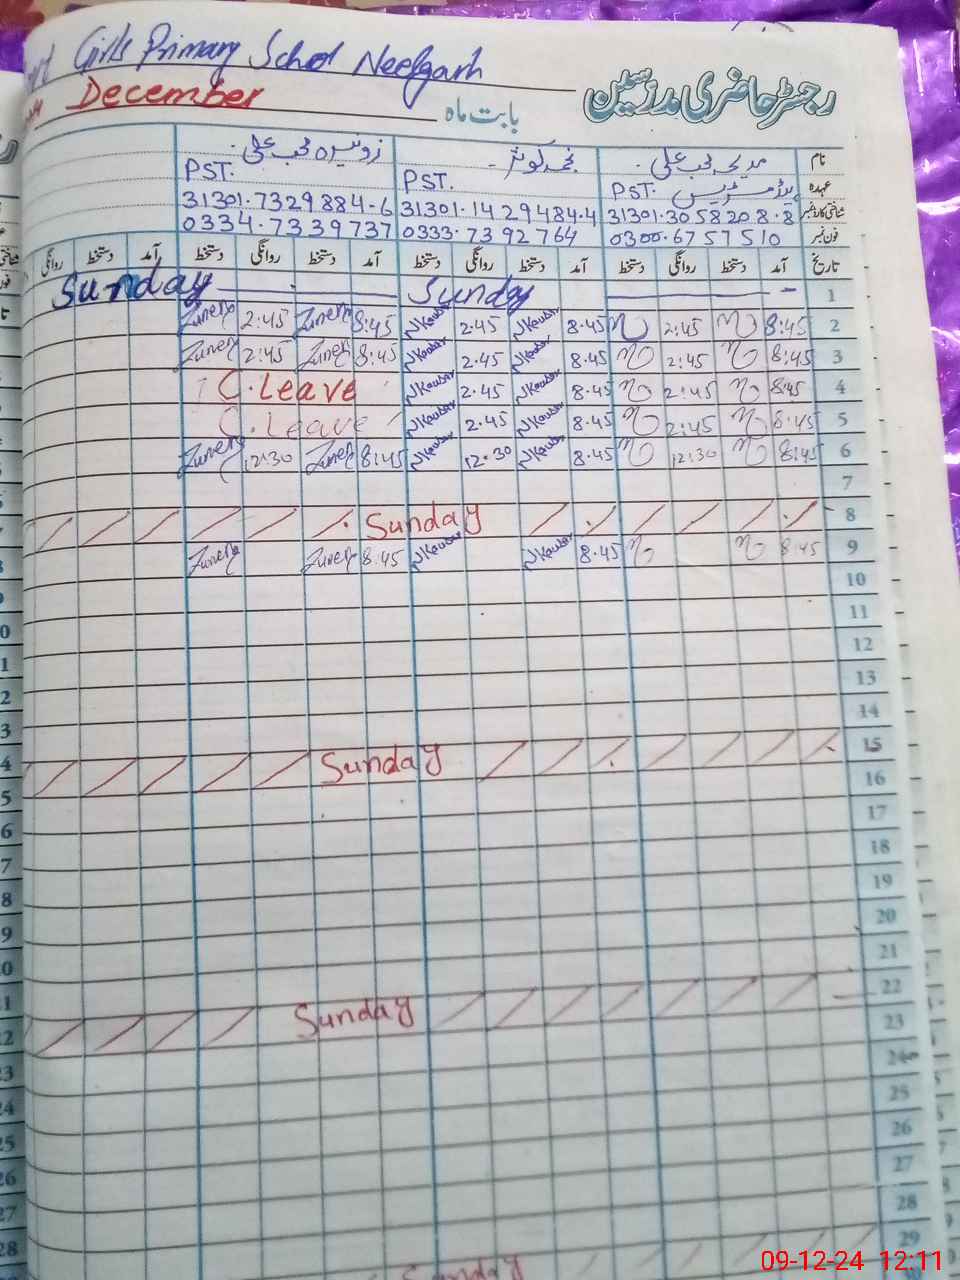 Girls Primary School Neelgarh
رجسٹر حاضری مدرسین
December بابت ماہ
نام مدیحہ محب علی نجمہ کوثر زونیرہ محب علی
عہدہ ہیڈ مسٹریس PST. PST. PST.
شناختی کارڈ نمبر 31301.3058208.8 31301.1429484.4 31301.7329884-6
فون نمبر 0300.6757510 0333.7392764 0334.7339737
تاریخ آمد دستخط روانگی دستخط آمد دستخط روانگی دستخط آمد دستخط روانگی دستخط آمد دستخط روانگی
1 Sunday Sunday
2 8:45 2:45 8.45 NKausar 2.45 NKausar 8:45 Zunera 2:45 Zunera
3 8:45 2:45 8.45 NKausar 2.45 NKausar 8:45 Zunera 2:45 Zunera
4 8:45 2:45 8.45 NKausar 2.45 NKausar C.Leave
5 8:45 2:45 8.45 NKausar 2.45 NKausar C.Leave
6 8:45 12:30 8.45 NKausar 12.30 NKausar 8:45 Zunera 12:30 Zunera
7
8 Sunday
9 8:45 8.45 NKausar NKausar 8:45 Zunera Zunera
10
11
12
13
14
15 Sunday
16
17
18
19
20
21
22 Sunday
23
24
25
26
27
28
29 Sunday
09-12-24 12:11